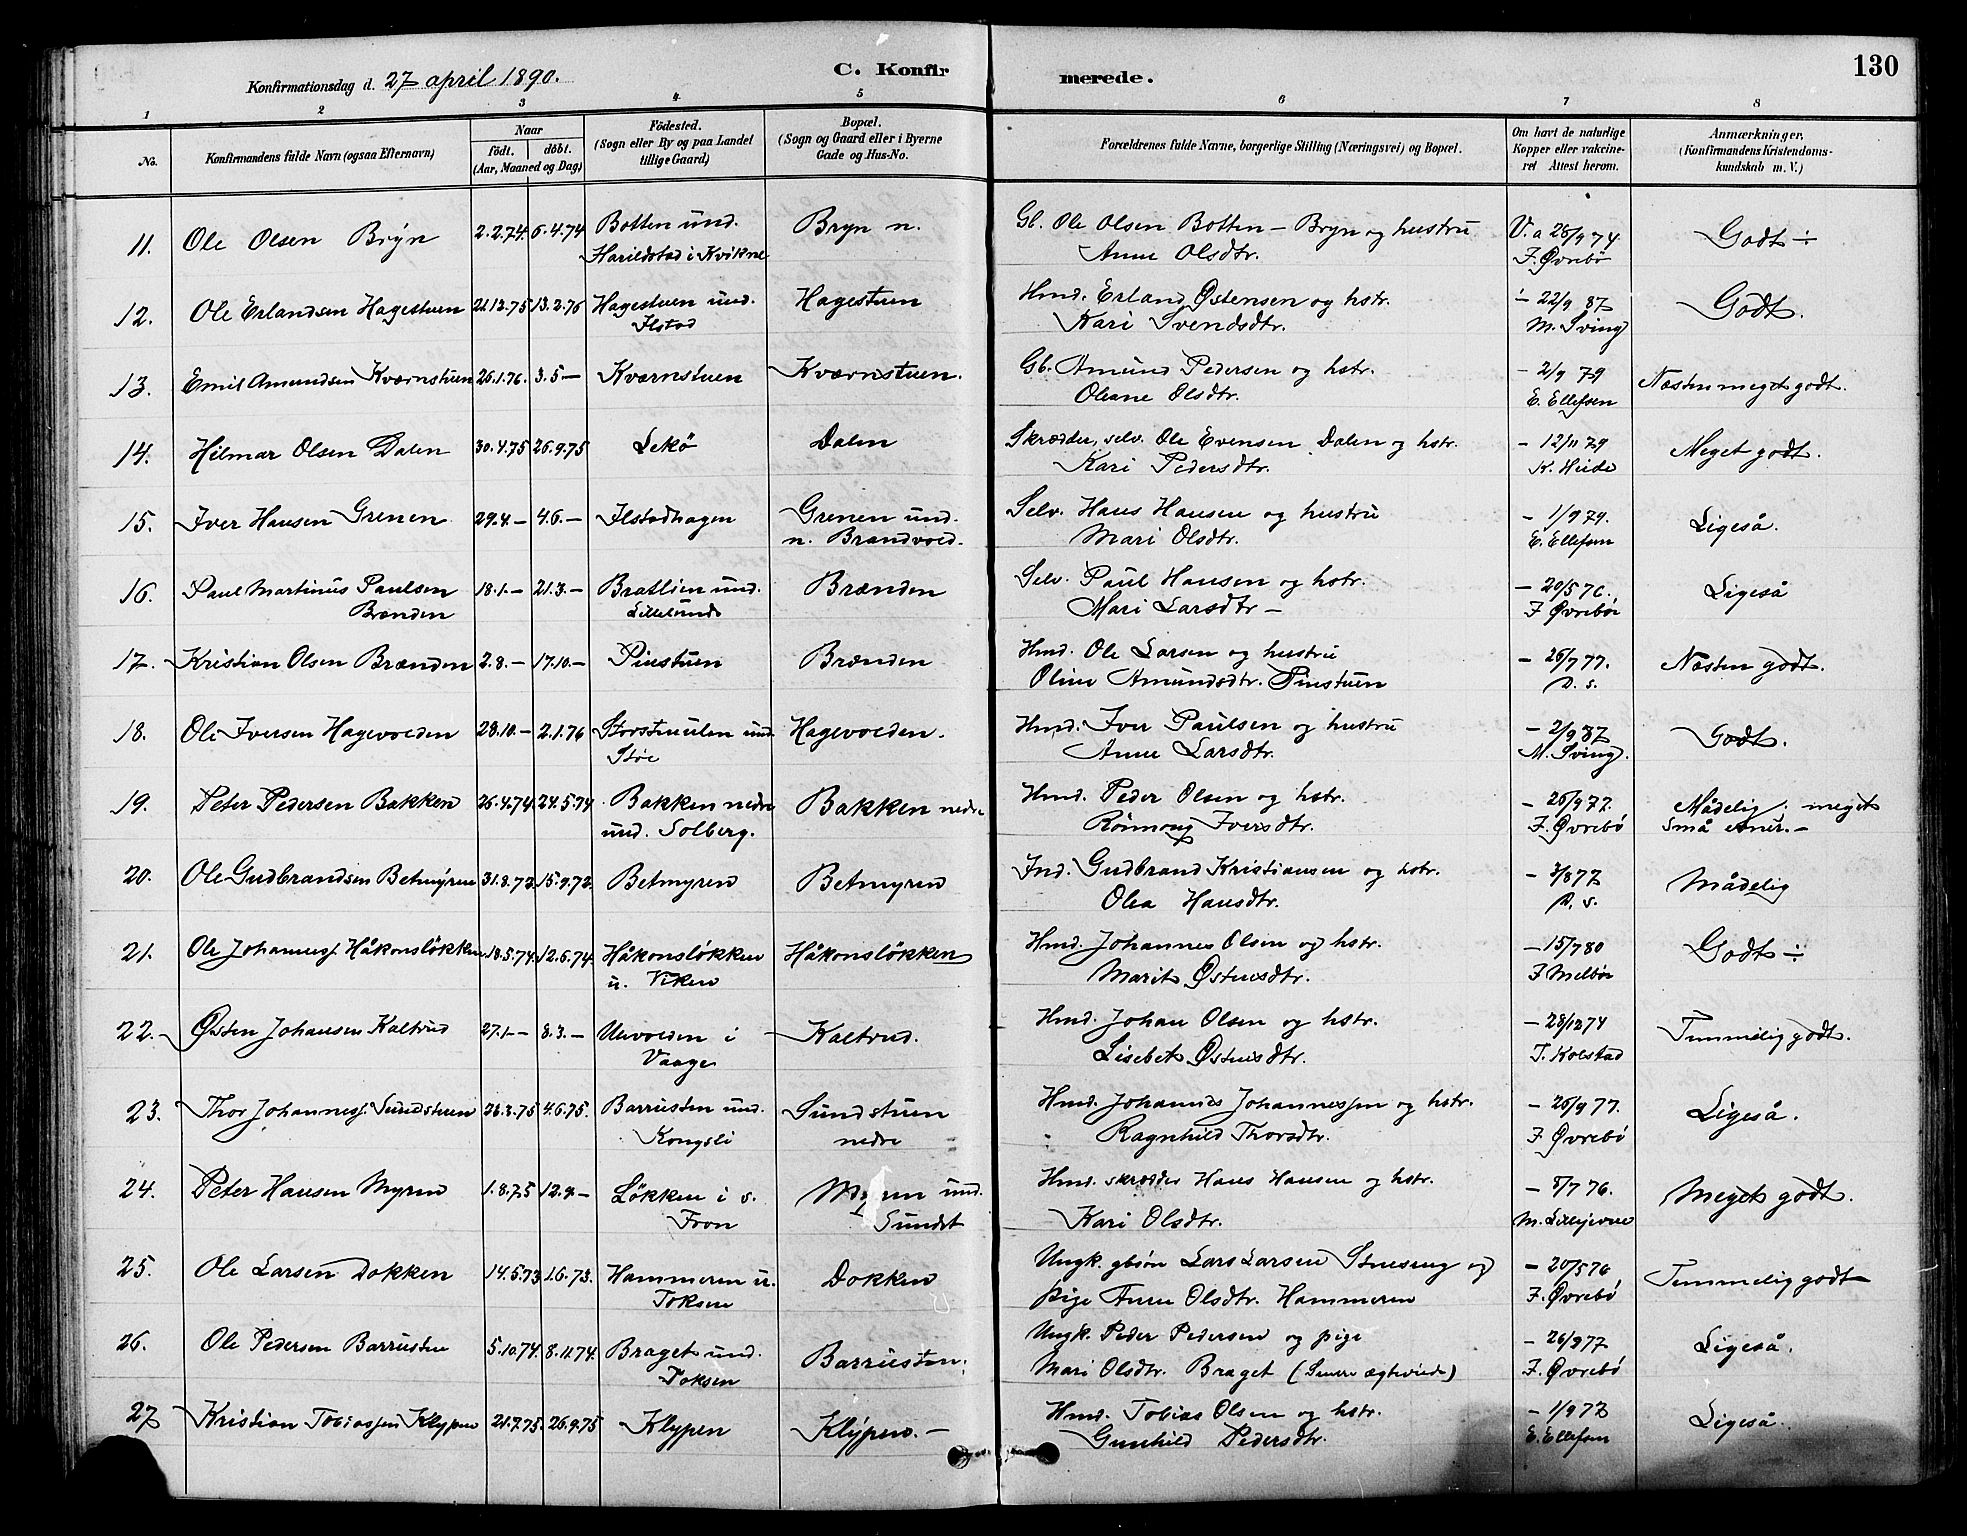 130
Konfirmationsdag d. 27 april 1890.
C. Konfirmerede.
1 2 3 4 5 6 7 8
No.
Konfirmandens fulde Navn (ogsaa Efternavn)
Naar
födt. döbt.
(Aar, Maaned og Dag)
Födested.
(Sogn eller By og paa Landet
tillige Gaard)
Bopæl.
(Sogn og Gaard eller i Byerne
Gade og Hus-No.
Forældrenes fulde Navne, borgerlige Stilling (Næringsvei) og Bopæl.
Om havt de naturlige
Kopper eller vakcine-
ret Attest herom.
Anmærkninger,
(Konfirmandens Kristendoms-
kundskab m. V.)
11. Ole Olsen Bryn 2.2.74. 6.4.74 Botten und. Bryn n. Gb. Ole Olsen Botten - Bryn og hustru V. a 26/9 74 Godt ÷
Harildstad i Kvikne Anne Olsdtr. F. Øvrebø
12. Ole Erlandsen Hagestuen 21.12.75 13.2.76 Hagestuen und. Hagestuen Hmd. Erland Østensen og hstr. ÷ 22/9 87 Godt.
Ilstad Kari Svendsdtr. M. Sving
13. Emil Amundsen Kværnstuen 26.1.76. 3.5- Kværnstuen Kværnstuen. Gb. Amund Pedersen og hstr. - 2/9 79 Næsten meget godt.
Oleane Olsdtr. E. Ellefsen
14. Hilmar Olsen Dalen 30.4.75 26.9.75 Lekø Dalen Skrædder, selv. Ole Evensen Dalen og hstr. - 12/11 79 Meget godt.
Kari Pedersdtr. K. Heide
15. Iver Hansen Grenen 29.4.- 4.6.- Ilstadhagen Grenen und. Selv. Hans Hansen og hustru - 1/9 79. Ligeså.
n. Brandvold. Mari Olsdtr. E. Ellefsen
16. Paul Martinus Paulsen 18.1.- 21.3.- Bratlien und. Brænden Selv. Paul Hansen og hstr. - 20/5 76. Ligeså
Brænden Lillelunde Mari Larsdtr - F. Øvrebø
17. Kristian Olsen Brænden 2.8.- 17.10.- Pinstuen Brænden Hmd. Ole Larsen og hustru - 26/7 77. Næsten godt.
Oline Amundsdtr. Pinstuen D. s.
18. Ole Iversen Hagevolden 28.10.- 2.1.76 Storstuulen und. Hagevolden. Hmd. Iver Paulsen og hustru - 2/9 87 Godt.
Stoe Anne Larsdtr. M. Sving.
19. Peter Pedersen Bakken 26.4.74. 24.5.74 Bakken nedre Bakken nedre Hmd. Peder Olsen og hstr. - 26/9 77. Mådelig. meget
und. Solberg. Rönnoug Iversdtr. F. Øvrebø små evner.-
20. Ole Gudbrandsen Betmyren 31.8.73. 15.9.73. Betmyren Betmyren Ind. Gudbrand Kristiansen og hstr. - 3/8 77 Mådelig
Olea Hansdtr. D. s.
21. Ole Johannesf. Håkonsløkken 18.5.74. 12.6.74. Håkonsløkken Håkonsløkken Hmd. Johannes Olsen og hstr. - 15/7 80 Godt ÷
u. Viken Marit Østensdtr. F Melbø
22. Østen Johansen Kaltrud 27.1- 8.3.- Ulevolden i Kaltrud. Hmd. Johan Olsen og hstr. - 28/12 74 Temmelig godt.
Vaage Lisebet Østensdtr. T. Kolstad
23. Thor Johannesf. Sundstuen 26.3.75 4.6.75. Barrusten und. Sundstuen Hmd. Johannes Johannessen og hstr. - 26/9 77. Ligeså.
Kongsli nedre Ragnhild Thorsdtr. F. Øvrebø
24. Peter Hansen Myren 1.8.75 12.9.- Løkken i s. Myren und. Hmd. skrædder Hans Hansen og hstr. - 8/7 76. Meget godt.
Fron Sundet Kari Olsdtr.
25. Ole Larsen Dokken 14.5.73 1.6.73. Hammeren u. Dokken Ungk. gbsøn Lars Larsen og - 20/5 76 Temmelig godt
Toksen pige Anne Olsdtr. Hammeren F. Øvrebø
26. Ole Pedersen Barrusten 5.10.74. 8.11.74. Braget und. Barrusten. Ungk. Peder Pedersen og pige - 26/9 77 Ligeså.
Toksen Mari Olsdtr. Braget (Senere ægteviede) F. Øvrebø
27 Kristian Tobiassen Klypen 21.7.75. 26.9.75 Klypen Klypen.- Hmd. Tobias Olsen og hstr. - 1/9 77 Ligeså.
Gunhild Pedersdtr. E. Ellefsen